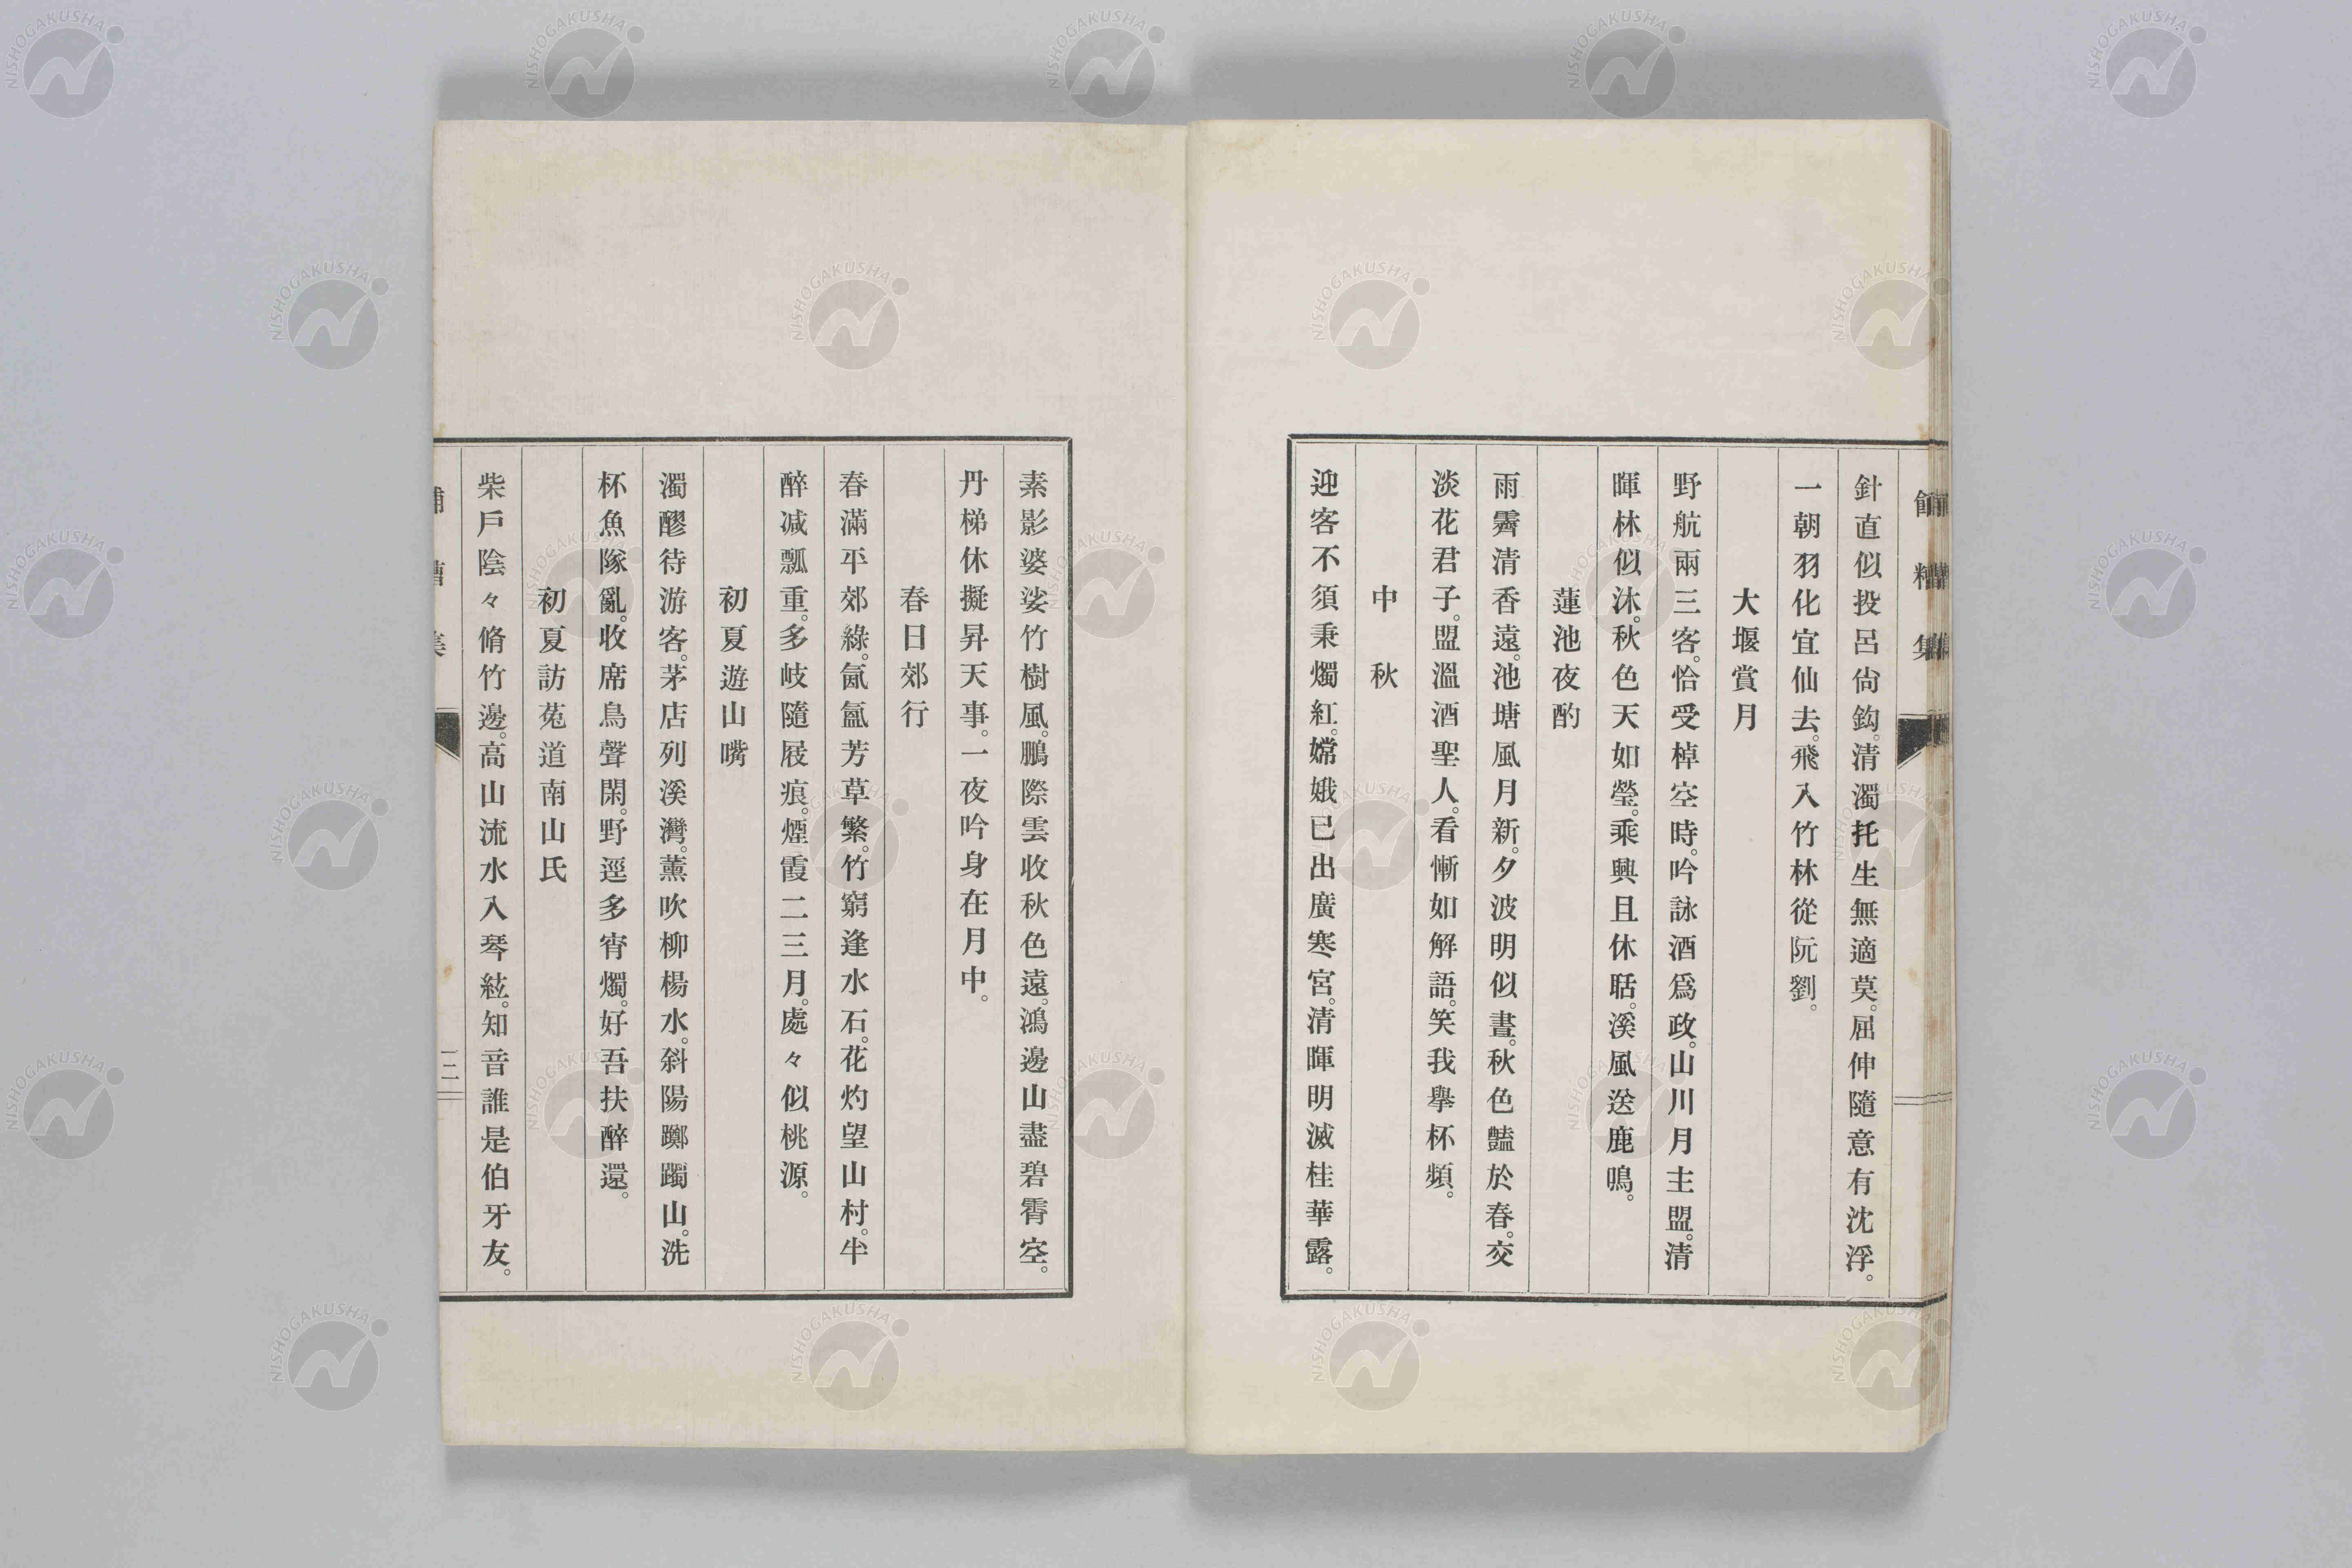 餔糟集
針直似投呂尙鈎。淸濁托生無適莫。屈伸隨意有沈浮。
一朝羽化宜仙去。飛入竹林從阮劉。
大堰賞月
野航兩三客。恰受棹空時。吟詠酒爲政。山川月主盟。淸
暉林似沐。秋色天如瑩。乘興且休聒。溪風送鹿鳴。
蓮池夜酌
雨霽淸香遠。池塘風月新。夕波明似晝。秋色豔於春。交
淡花君子。盟溫酒聖人。看慚如解語。笑我擧杯頻。
中秋
迎客不須秉燭紅。嫦娥已出廣寒宮。淸暉明滅桂華露。
素影婆娑竹樹風。鵬際雲收秋色遠。鴻邊山盡碧霄空。
丹梯休擬昇天事。一夜吟身在月中。
春日郊行
春滿平郊綠。氤氳芳草繁。竹窮逢水石。花灼望山村。半
醉減瓢重。多岐隨屐痕。煙霞二三月。處々似桃源。
初夏遊山嘴
濁醪待游客。茅店列溪灣。薰吹柳楊水。斜陽躑躅山。洗
杯魚隊亂。收席鳥聲閑。野逕多宵燭。好吾扶醉還。
初夏訪菟道南山氏
柴戶陰々脩竹邊。高山流水入琴絃。知音誰是伯牙友。
三
NISHOGAKUSHA